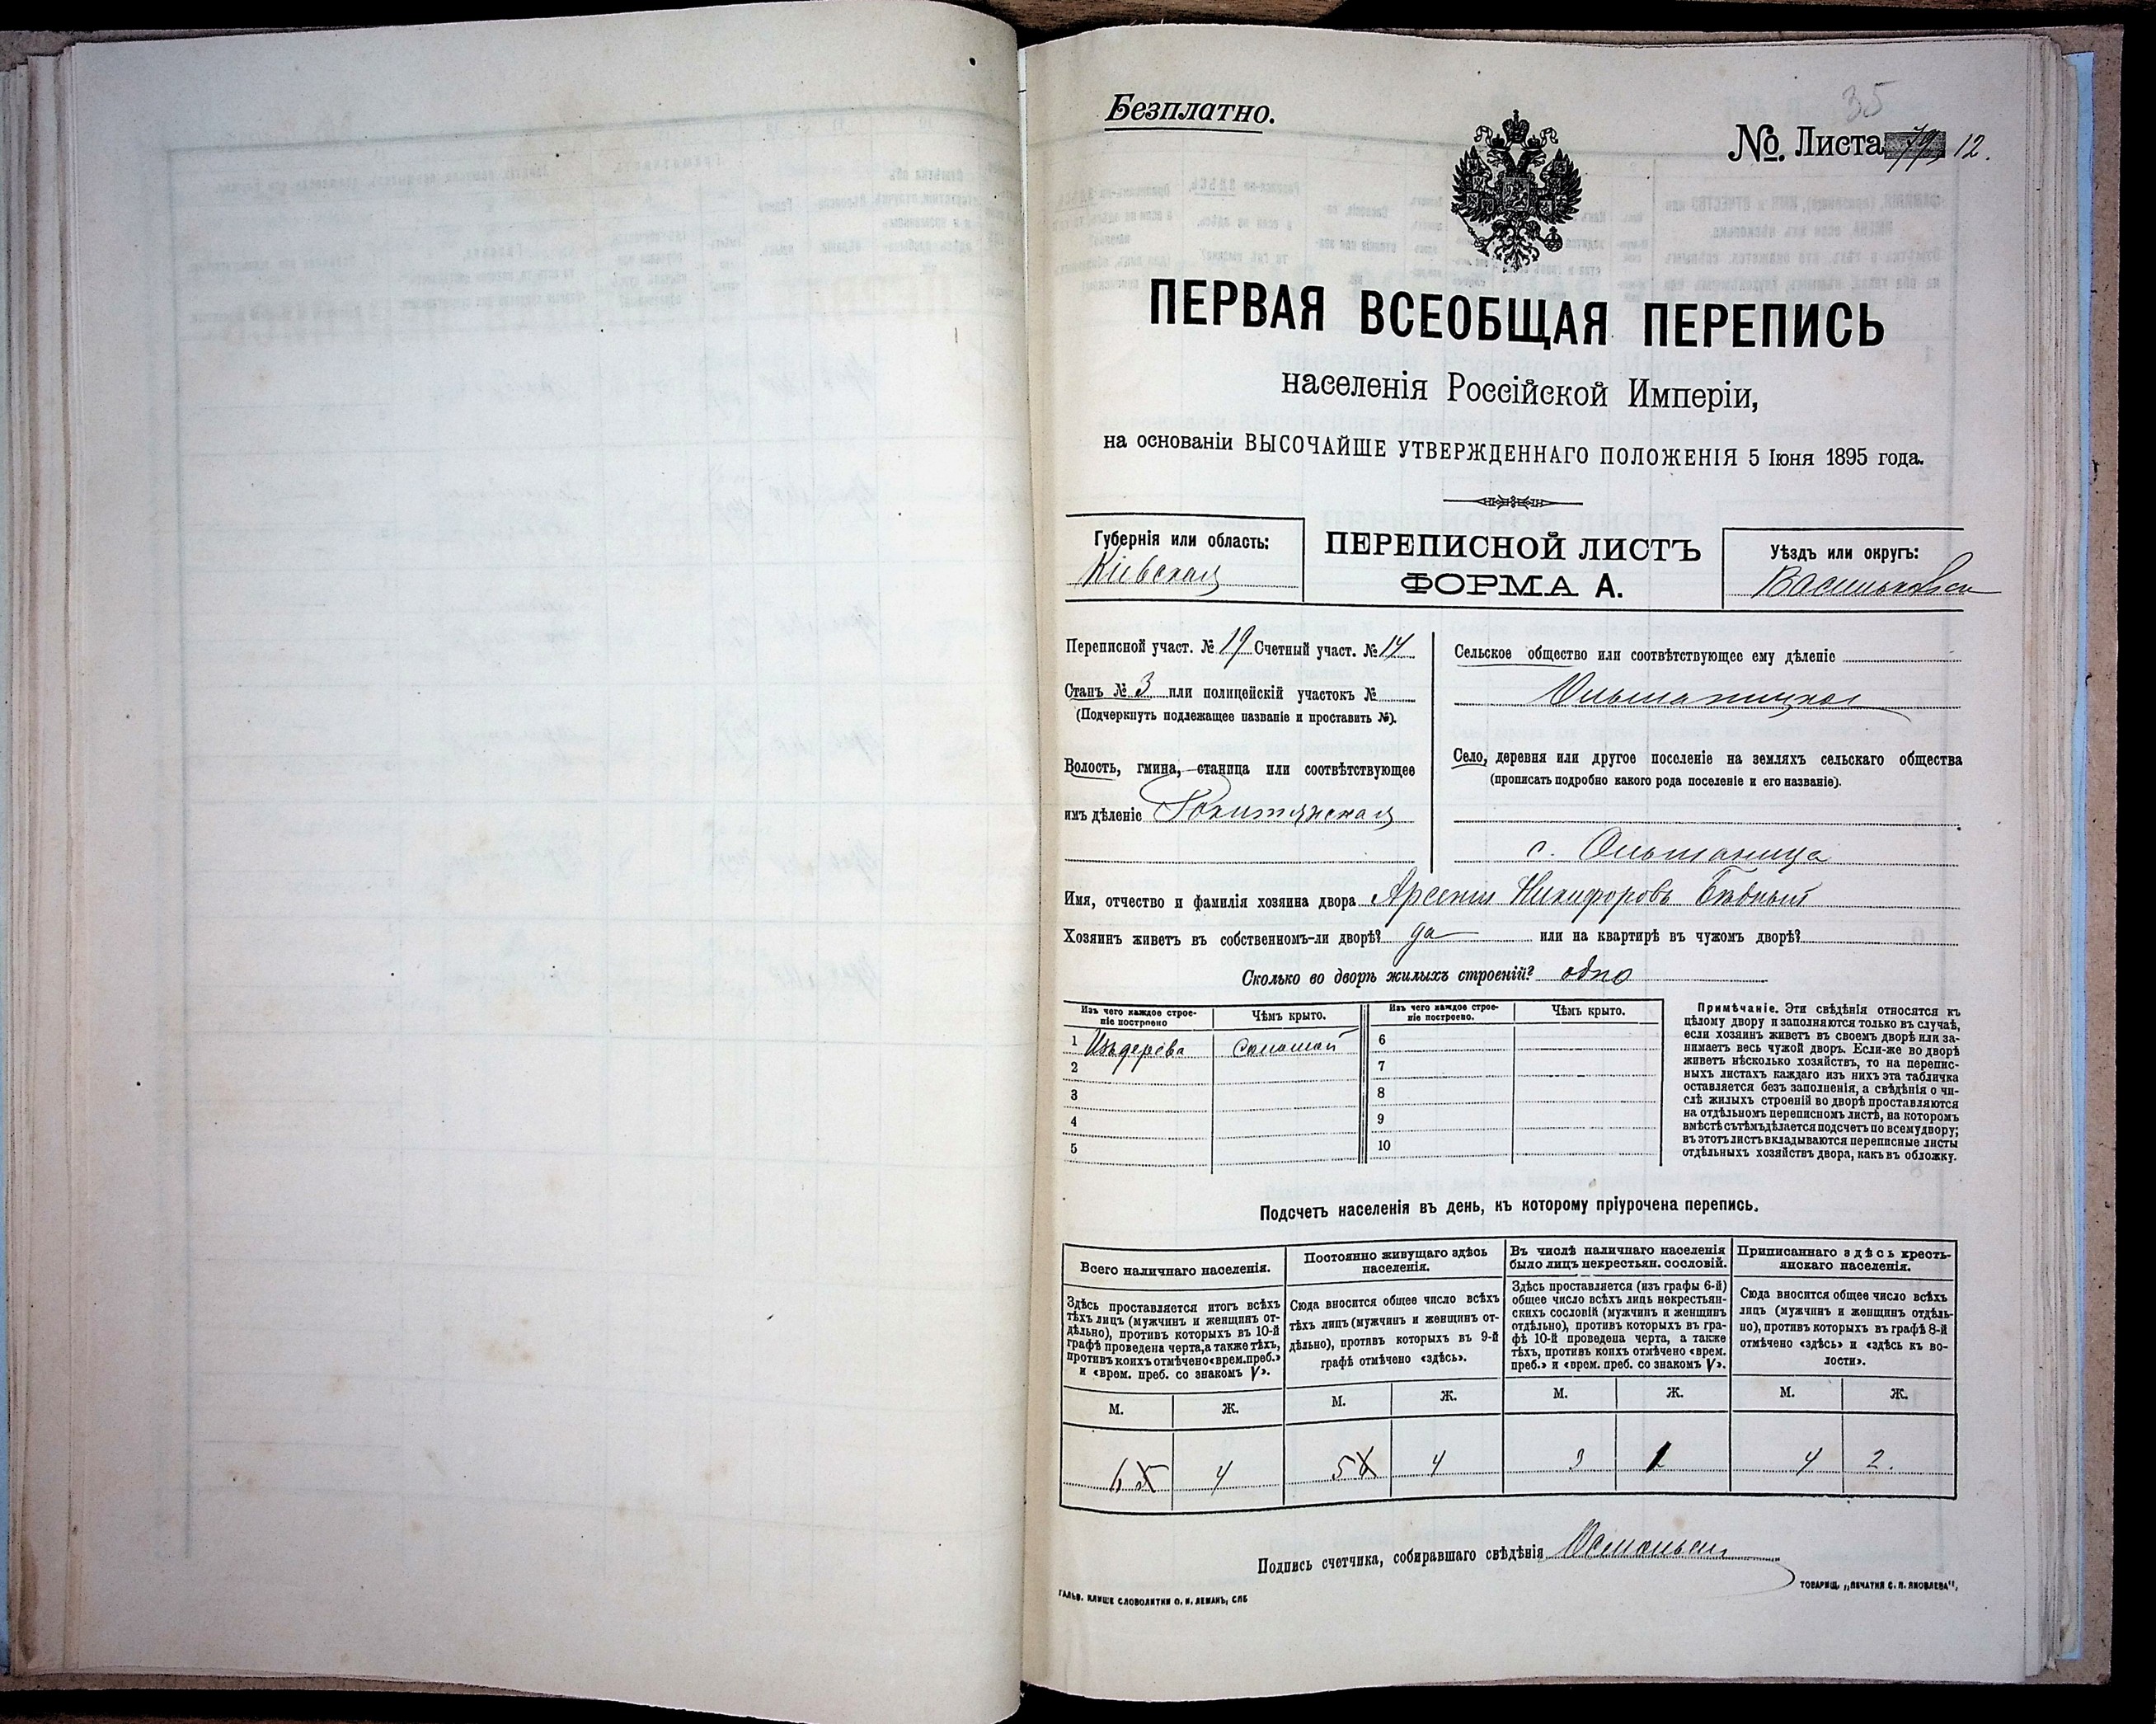 35
Безплатно.
№. Листа 12.
ПЕРВАЯ ВСЕОБЩАЯ ПЕРЕПИСЬ
населенія Россійской Имперіи,
на основаніи ВЫСОЧАЙШЕ УТВЕРЖДЕННАГО ПОЛОЖЕНІЯ 5 Іюня 1895 года.
Губернія или область:
Кіевская
ПЕРЕПИСНОЙ ЛИСТЪ
ФОРМА А.
Уѣздъ или округъ:
Васильковск
Переписной участ. № 19 Счетный участ. № 14
Станъ № 3 или полицейскій участокъ №
(Подчеркнуть подлежащее названіе и проставить №).
Волость, гмина, станица или соотвѣтствующее
имъ дѣленіе Рокитянская
Сельское общество или соотвѣтствующее ему дѣленіе
Ольшаницкое
Село, деревня или другое поселеніе на земляхъ сельскаго общества
(прописать подробно какого рода поселеніе и его названіе).
с. Ольшаница
Имя, отчество и фамилія хозяина двора Арсеній Никифоровъ Бѣдный
Хозяинъ живетъ въ собственномъ-ли дворѣ? да или на квартирѣ въ чужомъ дворѣ?
Сколько во дворѣ жилыхъ строеній? одно
Изъ чего каждое строе-
ніе построено
Чѣмъ крыто.
Изъ чего каждое строе-
ніе построено.
Чѣмъ крыто.
1 Изъ дерева соломой 6
2 7
3 8
4 9
5 10
Примѣчаніе. Эти свѣдѣнія относятся къ
цѣлому двору и заполняются только въ случаѣ,
если хозяинъ живетъ въ своемъ дворѣ или за-
нимаетъ весь чужой дворъ. Если-же во дворѣ
живетъ нѣсколько хозяйствъ, то на перепис-
ныхъ листахъ каждаго изъ нихъ эта табличка
оставляется безъ заполненія, а свѣдѣнія о чи-
слѣ жилыхъ строеній во дворѣ проставляются
на отдѣльномъ переписномъ листѣ, на которомъ
вмѣстѣ съ тѣмъ дѣлается подсчетъ по всему двору;
въ этотъ листъ вкладываются переписные листы
отдѣльныхъ хозяйствъ двора, какъ въ обложку.
Подсчетъ населенія въ день, къ которому пріурочена перепись.
Всего наличнаго населенія.
Здѣсь проставляется итогъ всѣхъ
тѣхъ лицъ (мужчинъ и женщинъ от-
дѣльно), противъ которыхъ въ 10-й
графѣ проведена черта, а также тѣхъ,
противъ коихъ отмѣчено «врем. преб.»
и «врем. преб. со знакомъ V».
Постоянно живущаго здѣсь
населенія.
Сюда вносится общее число всѣхъ
тѣхъ лицъ (мужчинъ и женщинъ от-
дѣльно), противъ которыхъ въ 9-й
графѣ отмѣчено «здѣсь».
Въ числѣ наличнаго населенія
было лицъ некрестьян. сословій.
Здѣсь проставляется (изъ графы 6-й)
общее число всѣхъ лицъ некрестьян-
скихъ сословій (мужчинъ и женщинъ
отдѣльно), противъ которыхъ въ гра-
фѣ 10-й проведена черта, а также
тѣхъ, противъ коихъ отмѣчено «врем.
преб.» и «врем. преб. со знакомъ V».
Приписаннаго здѣсь кресть-
янскаго населенія.
Сюда вносится общее число всѣхъ
лицъ (мужчинъ и женщинъ отдѣль-
но), противъ которыхъ въ графѣ 8-й
отмѣчено «здѣсь» и «здѣсь къ во-
лости».
М. Ж. М. Ж. М. Ж. М. Ж.
6 4 5 4 3 1 4 2.
Подпись счетчика, собиравшаго свѣдѣнія
ГАЛЬВ. КЛИШЕ СЛОВОЛИТНИ О. И. ЛЕМАНЪ, СПБ
ТОВАРИЩ. „ПЕЧАТНЯ С. П. ЯКОВЛЕВА",